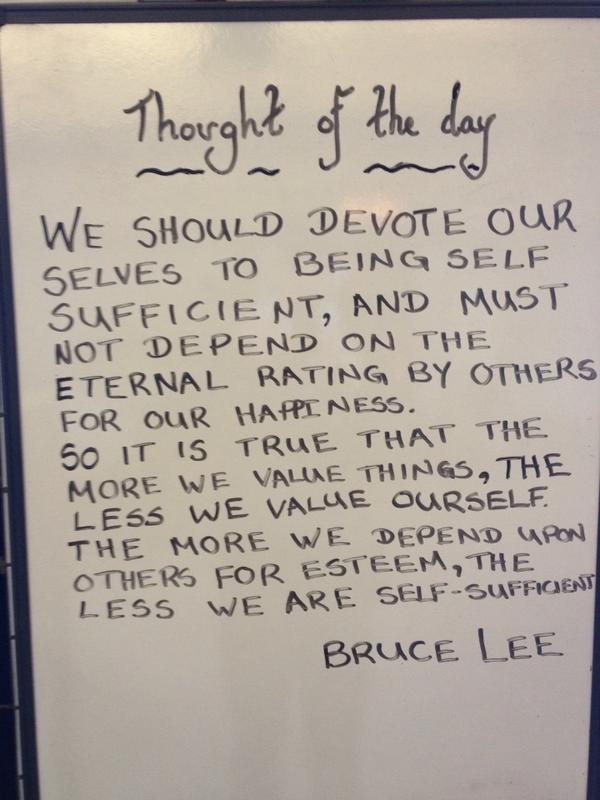 Thought of the day
WE SHOULD DEVOTE OUR
SELVES TO BEING SELF
SUFFICIENT, AND MUST
NOT DEPEND ON THE
ETERNAL RATING BY OTHERS
FOR OUR HAPPINESS.
SO IT IS TRUE THAT THE
MORE WE VALUE THINGS, THE
LESS WE VALUE OURSELF.
THE MORE WE DEPEND UPON
OTHERS FOR ESTEEM, THE
LESS WE ARE SELF-SUFFICIENT
BRUCE LEE